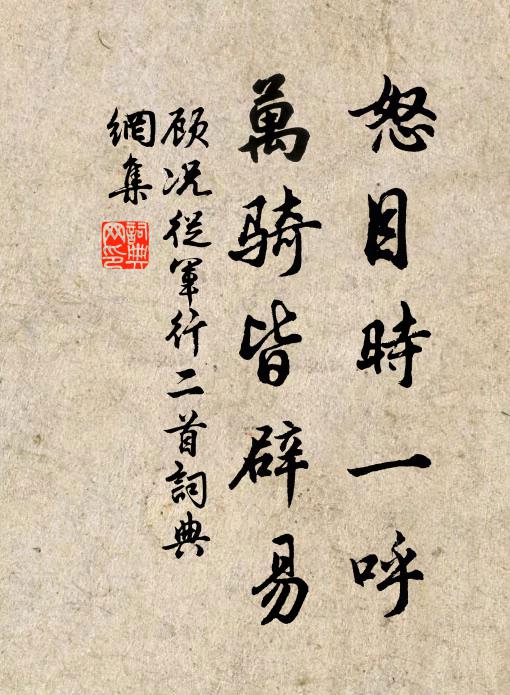 怒目時一呼
萬騎皆辟易
顾况從軍行二首詞典
網集
詞典网印